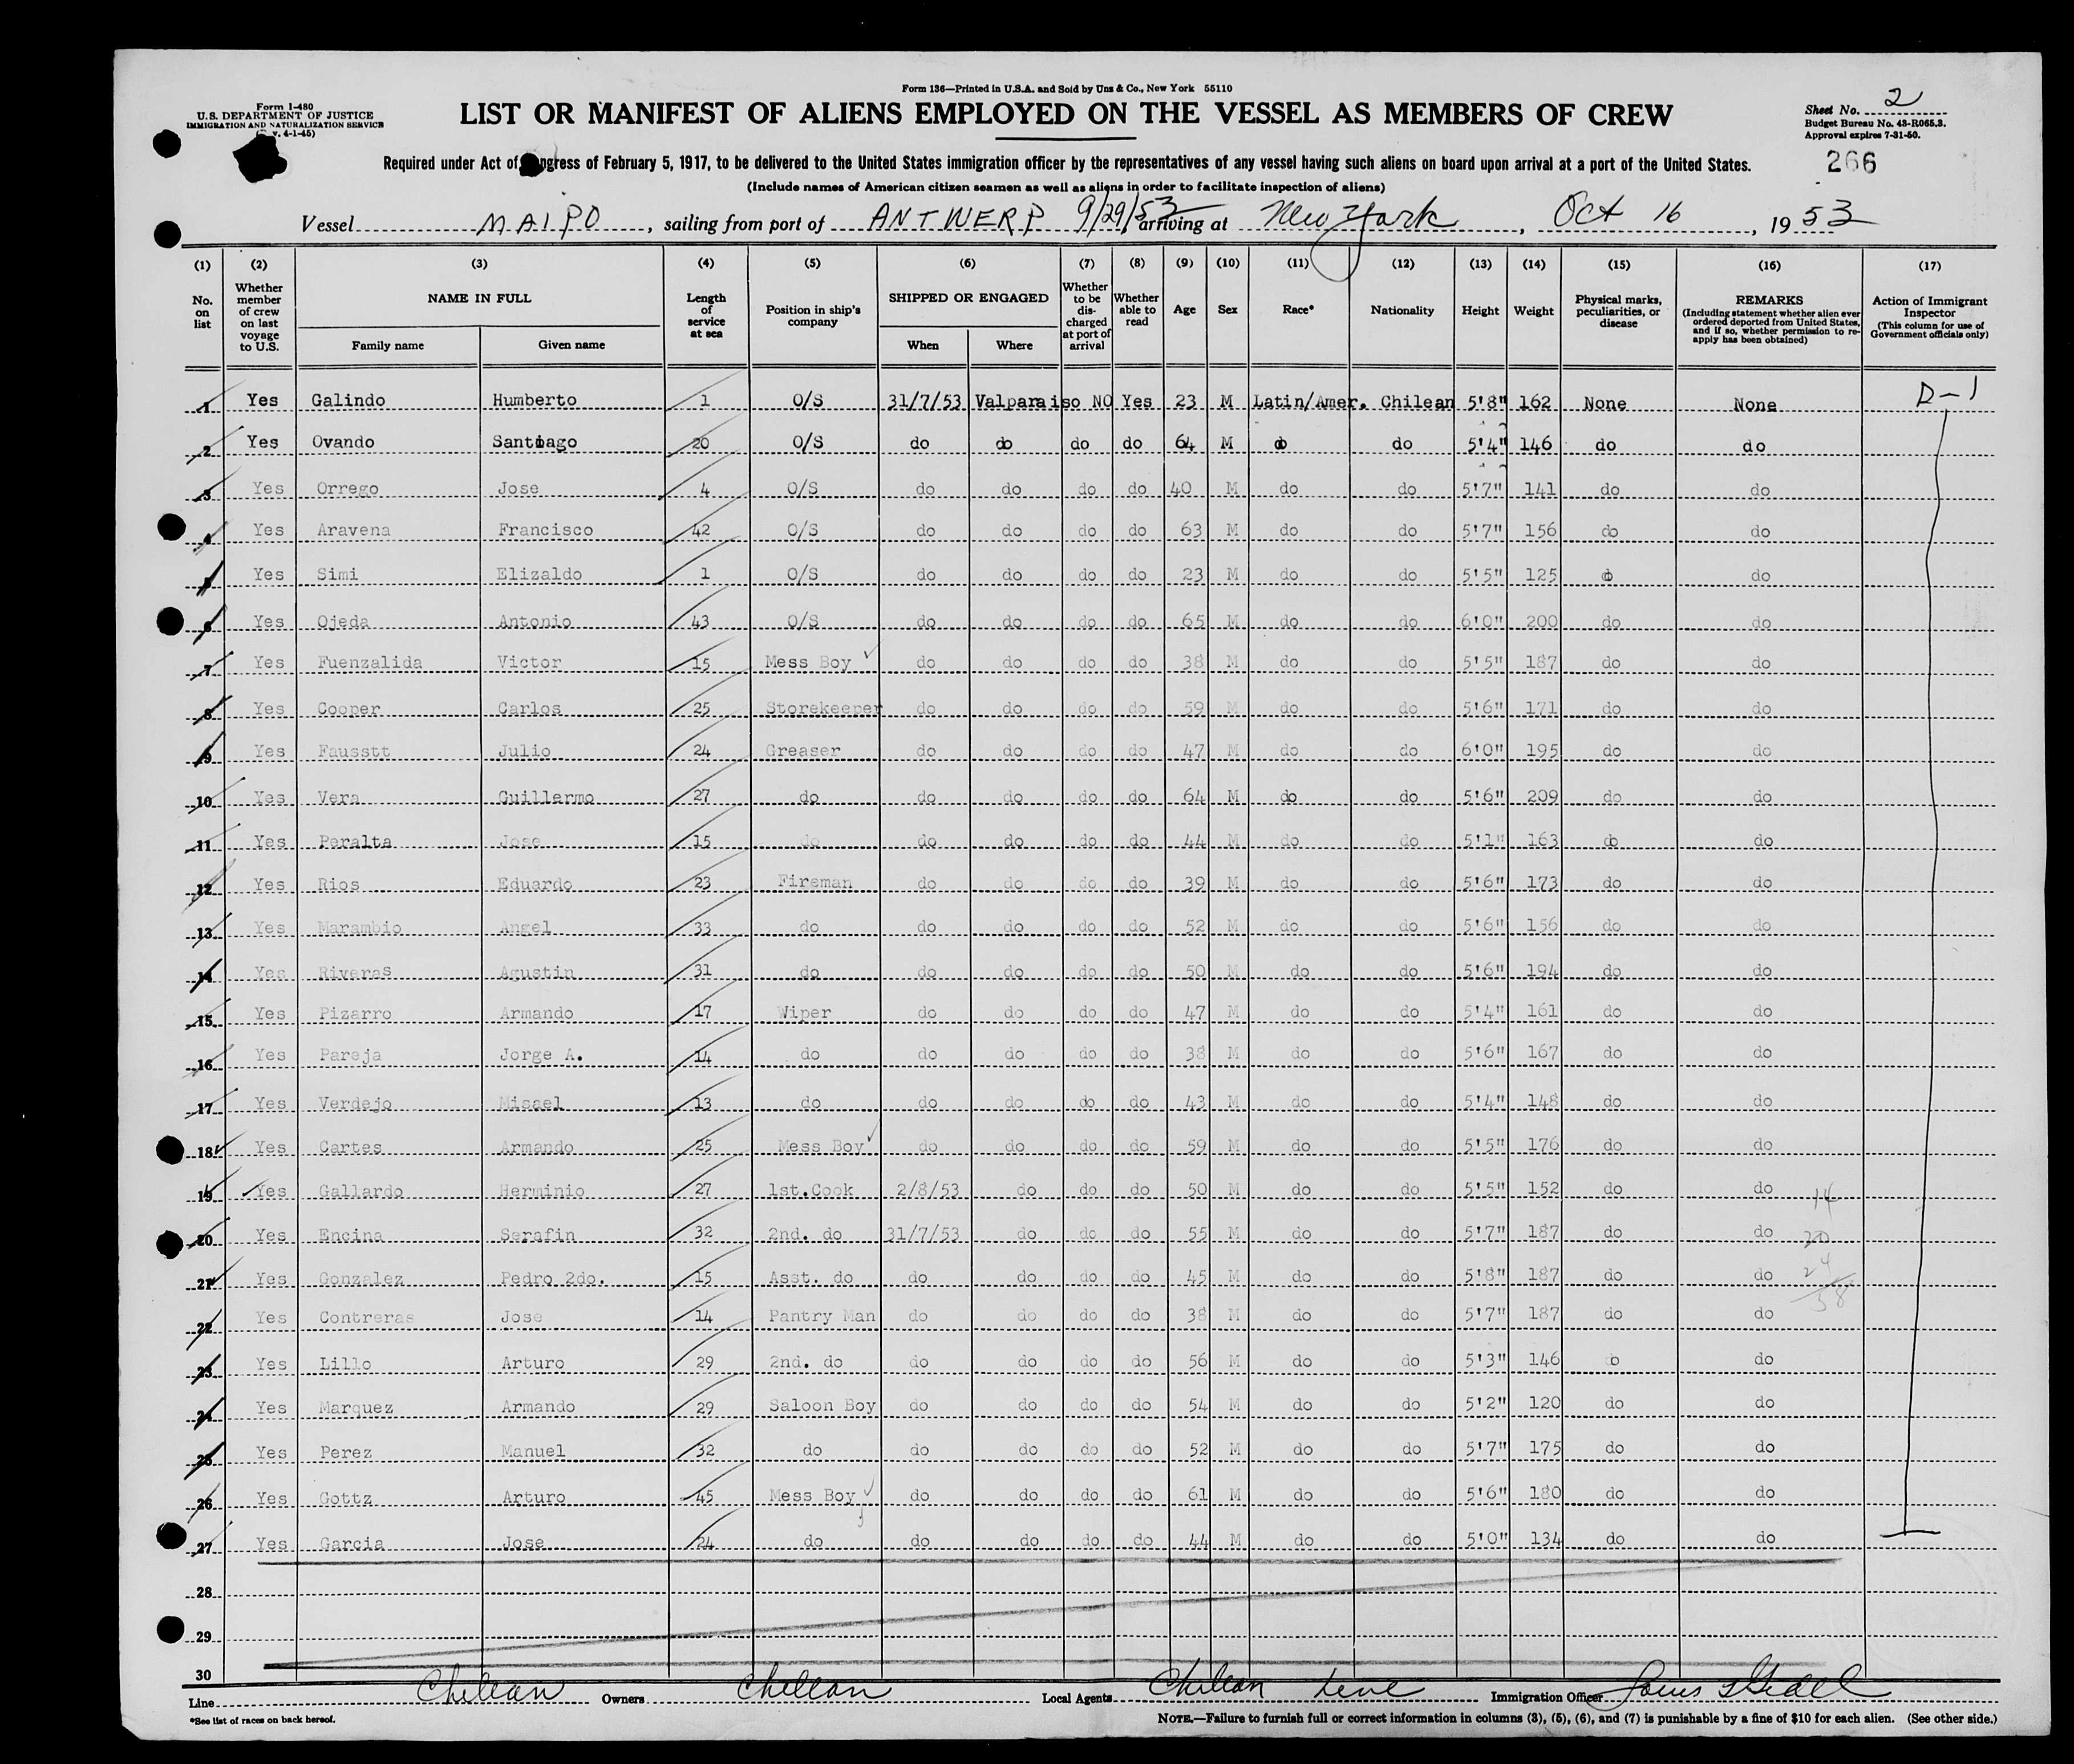 Form 136—Printed in U.S.A. and Sold by Unz & Co., New York 55110
Form I-480
U.S. DEPARTMENT OF JUSTICE
IMMIGRATION AND NATURALIZATION SERVICE
v. 4-1-45)
LIST OR MANIFEST OF ALIENS EMPLOYED ON THE VESSEL AS MEMBERS OF CREW
Sheet No. 2
Budget Bureau No. 43-R065.3.
Approval expires 7-31-50.
266
Required under Act of ngress of February 5, 1917, to be delivered to the United States immigration officer by the representatives of any vessel having such aliens on board upon arrival at a port of the United States.
(Include names of American citizen seamen as well as aliens in order to facilitate inspection of aliens)
Vessel MAIPO, sailing from port of ANTWERP 9/29/53 arriving at New York, Oct 16, 1953
(1) (2) (3) (4) (5) (6) (7) (8) (9) (10) (11) (12) (13) (14) (15) (16) (17)
No. on list
Whether member of crew on last voyage to U.S.
NAME IN FULL
Family name
Given name
Length of service at sea
Position in ship's company
SHIPPED OR ENGAGED
When
Where
Whether to be discharged at port of arrival
Whether able to read
Age
Sex
Race*
Nationality
Height
Weight
Physical marks, peculiarities, or disease
REMARKS
(Including statement whether alien ever ordered deported from United States, and if so, whether permission to re-apply has been obtained)
Action of Immigrant Inspector
(This column for use of Government officials only)
1 Yes Galindo Humberto 1 O/S 31/7/53 Valparaiso NO Yes 23 M Latin/Amer. Chilean 5'8" 162 None None D-1
2 Yes Ovando Santiago 20 O/S do do do do 64 M do do 5'4" 146 do do
3 Yes Orrego Jose 4 O/S do do do do 40 M do do 5'7" 141 do do
4 Yes Aravena Francisco 42 O/S do do do do 63 M do do 5'7" 156 do do
5 Yes Simi Elizaldo 1 O/S do do do do 23 M do do 5'5" 125 do do
6 Yes Ojeda Antonio 43 O/S do do do do 65 M do do 6'0" 200 do do
7 Yes Fuenzalida Victor 15 Mess Boy do do do do 38 M do do 5'5" 187 do do
8 Yes Cooper Carlos 25 Storekeeper do do do do 59 M do do 5'6" 171 do do
9 Yes Fausstt Julio 24 Greaser do do do do 47 M do do 6'0" 195 do do
10 Yes Vera Guillermo 27 do do do do do 64 M do do 5'6" 209 do do
11 Yes Peralta Jose 15 do do do do do 44 M do do 5'1" 163 do do
12 Yes Rios Eduardo 23 Fireman do do do do 39 M do do 5'6" 173 do do
13 Yes Marambio Angel 33 do do do do do 52 M do do 5'6" 156 do do
14 Yes Riveras Agustin 31 do do do do do 50 M do do 5'6" 194 do do
15 Yes Pizarro Armando 17 Wiper do do do do 47 M do do 5'4" 161 do do
16 Yes Pareja Jorge A. 14 do do do do do 38 M do do 5'6" 167 do do
17 Yes Verdejo Misael 13 do do do do do 43 M do do 5'4" 148 do do
18 Yes Cartes Armando 25 Mess Boy do do do do 59 M do do 5'5" 176 do do
19 Yes Gallardo Herminio 27 1st.Cook 2/8/53 do do do 50 M do do 5'5" 152 do do 14
20 Yes Encina Serafin 32 2nd. do 31/7/53 do do do 55 M do do 5'7" 187 do do 20
21 Yes Gonzalez Pedro 2do. 15 Asst. do do do do do 45 M do do 5'8" 187 do do 24
58
22 Yes Contreras Jose 14 Pantry Man do do do do 38 M do do 5'7" 187 do do
23 Yes Lillo Arturo 29 2nd. do do do do do 56 M do do 5'3" 146 do do
24 Yes Marquez Armando 29 Saloon Boy do do do do 54 M do do 5'2" 120 do do
25 Yes Perez Manuel 32 do do do do do 52 M do do 5'7" 175 do do
26 Yes Gottz Arturo 45 Mess Boy do do do do 61 M do do 5'6" 180 do do
27 Yes Garcia Jose 24 do do do do do 44 M do do 5'0" 134 do do
28
29
30
Line Chilean Owners Chilean Local Agents Chilean Line Immigration Officer
*See list of races on back hereof.
NOTE.—Failure to furnish full or correct information in columns (3), (5), (6), and (7) is punishable by a fine of $10 for each alien. (See other side.)